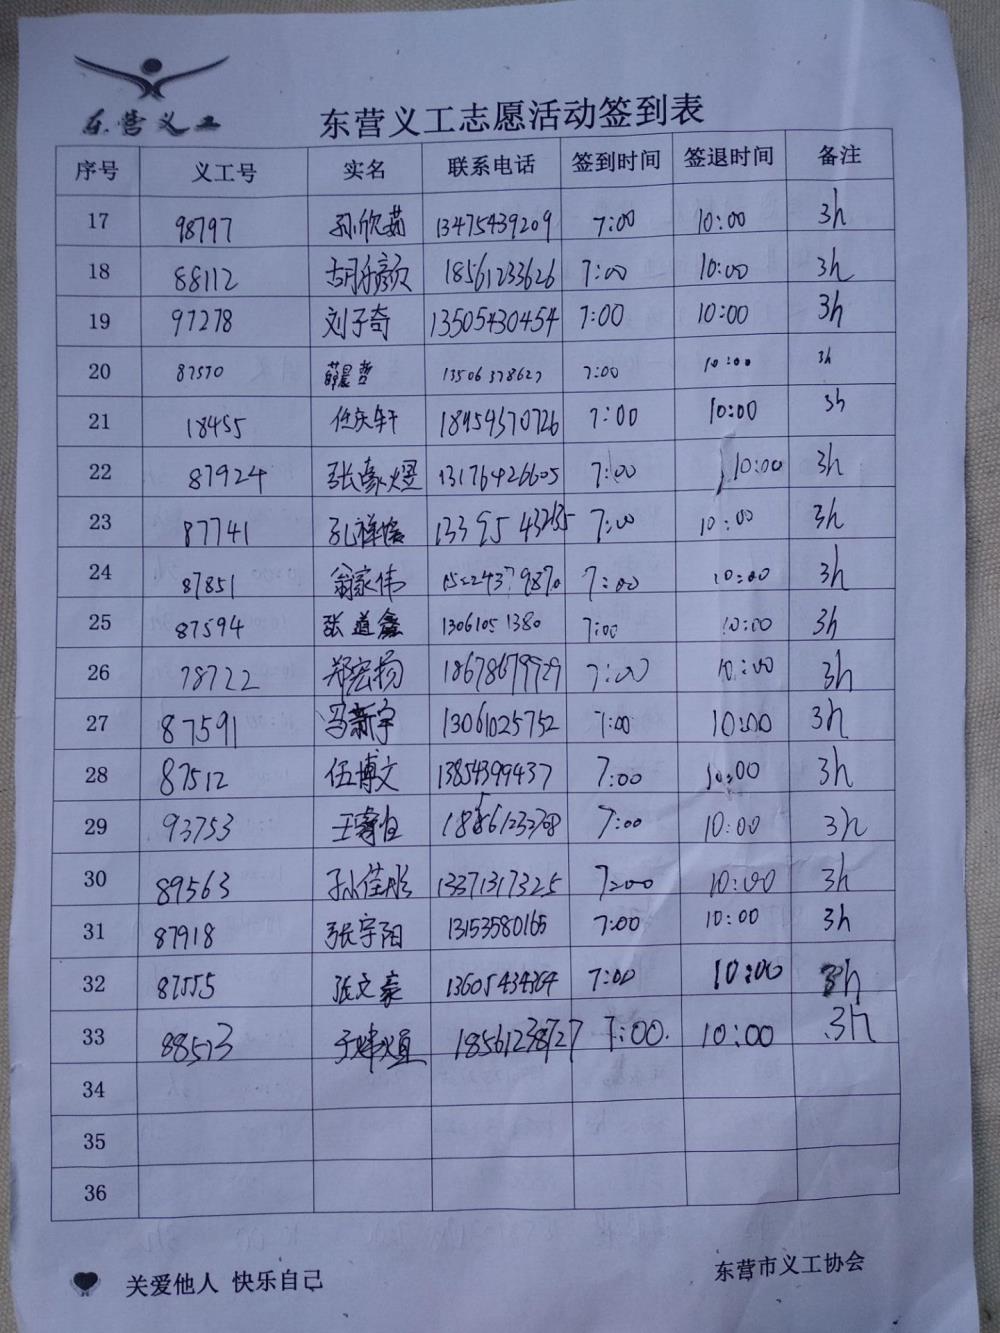 东营义工
东营义工志愿活动签到表
序号 义工号 实名 联系电话 签到时间 签退时间 备注
17 98797 孙欣茹 13475439209 7:00 10:00 3h
18 88112 18561233626 7:00 10:00 3h
19 97278 刘子奇 13505430454 7:00 10:00 3h
20 87570 薛晨哲 7:00 10:00 3h
21 18455 任庆轩 7:00 10:00 3h
22 87924 张豪煜 13176426605 7:00 10:00 3h
23 87741 7:00 10:00 3h
24 87851 翁家伟 7:00 10:00 3h
25 87594 张道鑫 13061051380 7:00 10:00 3h
26 78722 郑宏扬 7:00 10:00 3h
27 87591 冯新宇 13061025752 7:00 10:00 3h
28 87512 伍博文 13854399437 7:00 10:00 3h
29 93753 7:00 10:00 3h
30 89563 孙佳彤 13371317325 7:00 10:00 3h
31 87918 张宇阳 13153580165 7:00 10:00 3h
32 87555 张文豪 7:00 10:00 3h
33 88573 18561238727 7:00. 10:00 3h
34
35
36
关爱他人 快乐自己
东营市义工协会